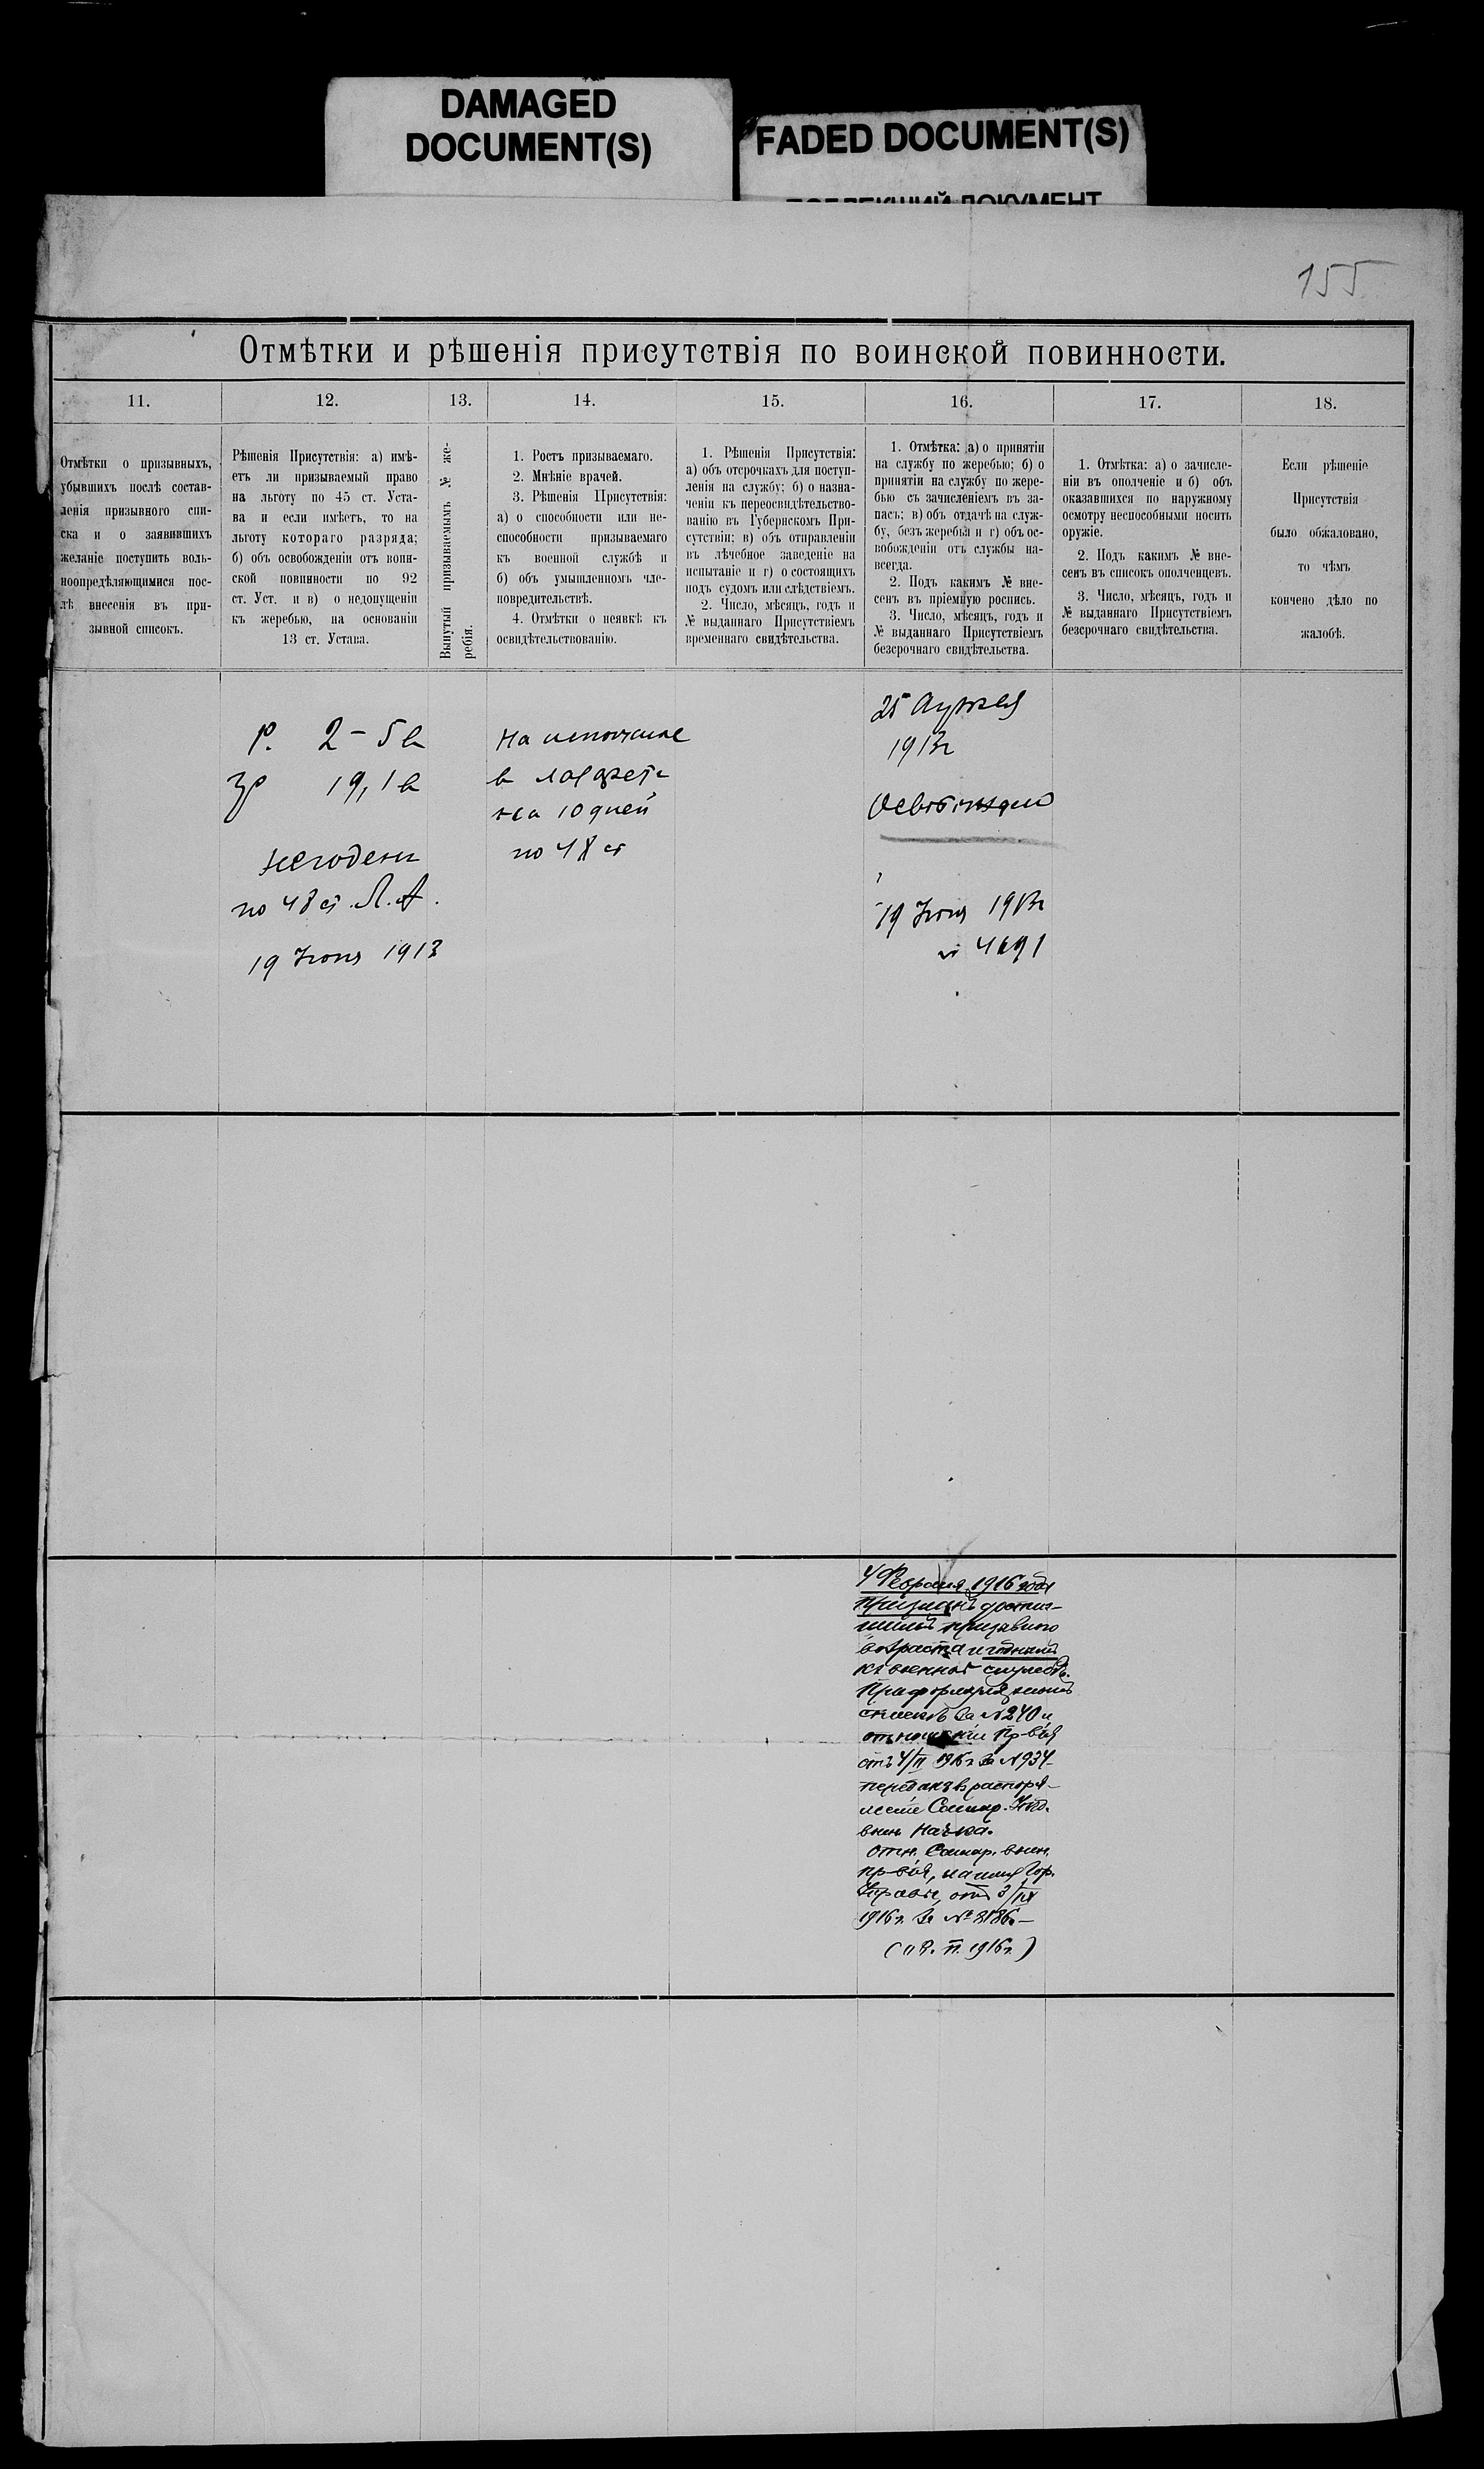 DAMAGED
DOCUMENT(S)
FADED DOCUMENT(S)
ПОБЛЕКШИЙ ДОКУМЕНТ
155
Отмѣтки и рѣшенія присутствія по воинской повинности.
11.
12.
13.
14.
15.
16.
17.
18.
Отмѣтки о призывныхъ,
убывшихъ послѣ состав-
ленія призывного спи-
ска и о заявившихъ
желаніе поступить воль-
ноопредѣляющимися пос-
лѣ внесенія въ при-
зывной списокъ.
Рѣшенія Присутствія: а) имѣ-
етъ ли призываемый право
на льготу по 45 ст. Уста-
ва и если имѣетъ, то на
льготу котораго разряда;
б) объ освобожденіи отъ воин-
ской повинности по 92
ст. Уст. и в) о недопущеніи
къ жеребью, на основаніи
13 ст. Устава.
Вынутый призываемымъ № же-
ребія.
1. Ростъ призываемаго.
2. Мнѣніе врачей.
3. Рѣшенія Присутствія:
а) о способности или не-
способности призываемаго
къ военной службѣ и
б) объ умышленномъ чле-
новредительствѣ.
4. Отмѣтки о неявкѣ къ
освидѣтельствованію.
1. Рѣшенія Присутствія:
а) объ отсрочкахъ для поступ-
ленія на службу; б) о назна-
ченіи къ переосвидѣтельство-
ванію въ Губернскомъ При-
сутствіи: в) объ отправленіи
въ лѣчебное заведеніе на
испытаніе и г) о состоящихъ
подъ судомъ или слѣдствіемъ.
2. Число, мѣсяцъ, годъ и
№ выданнаго Присутствіемъ
временнаго свидѣтельства.
1. Отмѣтка: а) о принятіи
на службу по жеребью; б) о
принятіи на службу по жере-
бью съ зачисленіемъ въ за-
пасъ; в) объ отдачѣ на служ-
бу, безъ жеребья и г) объ ос-
вобожденіи отъ службы на-
всегда.
2. Подъ какимъ № вне-
сенъ въ пріемную роспись.
3. Число, мѣсяцъ, годъ и
№ выданнаго Присутствіемъ
безсрочнаго свидѣтельства.
1. Отмѣтка: а) о зачисле-
ніи въ ополченіе и б) объ
оказавшихся по наружному
осмотру неспособными носить
оружіе.
2. Подъ какимъ № вне-
сенъ въ списокъ ополченцевъ.
3. Число, мѣсяцъ, годъ и
№ выданнаго Присутствіемъ
безсрочнаго свидѣтельства.
Если рѣшеніе
Присутствія
было обжаловано,
то чѣмъ
кончено дѣло по
жалобѣ.
Р. 2-5
19,1
негоденъ
по 48 ст. Л. А.
19 Іюня 1913
на
в
на 10 дней
по 48 ст
25 Апрѣля
1913г
19 Іюня 1913г
№ 4691
4 Февраля 1916 года
Признанъ достиг-
шимъ призывного
возраста и годнымъ
къ военной службѣ.
При формулярномъ
спискѣ за №240 и
отношеніи Пр-вія
отъ 4/II 1916 г за №934
переданъ въ распоря-
женіе Самар. Уѣзд.
воин. Нач-ка.
Отн. Самар. воин.
пр-вія, на имя Гор.
Управы, отъ 3/
1916 г. за № 2186.—